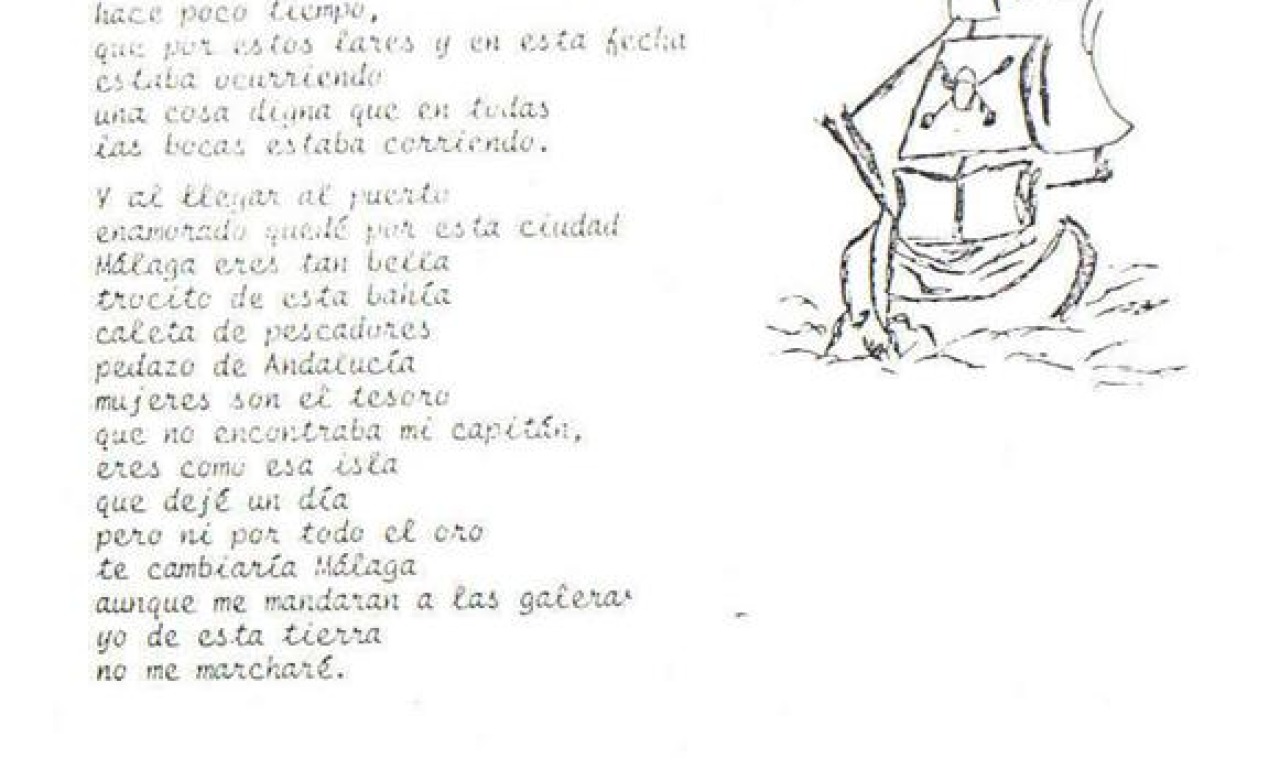 hace poco tiempo,
que por estos lares y en esta fecha
estaba ocurriendo
una cosa digna que en todas
las bocas estaba corriendo.
Y al llegar al puerto
enamorado quedé por esta ciudad
Málaga eres tan bella
trocito de esta bahía
caleta de pescadores
pedazo de Andalucía
mujeres son el tesoro
que no encontraba mi capitán,
eres como esa isla
que dejé un día
pero ni por todo el oro
te cambiaría Málaga
aunque me mandaran a las galeras
yo de esta tierra
no me marcharé.